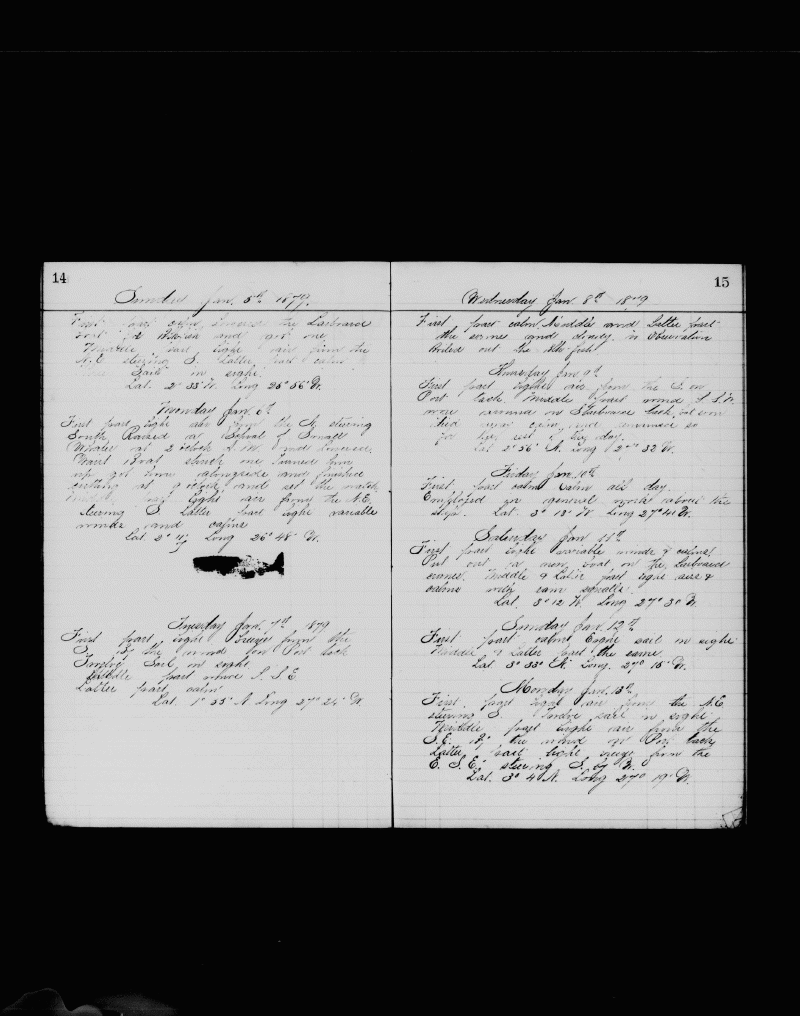 14
Sunday Jan. 5th 1879
First part calm, the Larboard
and
Middle part light air from the
N.E. steering S. Latter part calm
Sail in sight.
Lat. 2° 33' N. Long 26° 56' W.
Monday Jan. 6th
First part light air from the N. steering
South, Raised a School of Small
Whales at 2 o'clock P.M. and lowered.
Waist Boat struck one
got him alongside and finished
cutting at 9 o'clock and set the watch
Middle part light air from the N.E.
steering S. Latter part light variable
winds and calms
Lat 2° Long 26° 48' W.
Tuesday Jan. 7th 1879
First part light breeze from the
S. by the wind on Port tack
Twelve Sail in sight
Middle part wind S.S.E.
Latter part calm
Lat. 1° 55' N Long 27° 24' W.
15
Wednesday Jan 8th 1879
First part calm, Middle and Latter part
the same and cloudy, no Observation
out the
Thursday Jan 9th
First part light air from the S. on
Port tack. Middle part wind S.S.W.
on Starboard tack,
day.
Lat 2° 56' N. Long 27° 32' W.
Friday Jan. 10th
First part calm Calm all day.
Employed in general work about the
ship. Lat. 3° 13' N Long 27° 41' W.
Saturday Jan 11th
First part light variable winds & calms
Put out a new boat on the Larboard
cranes. Middle & Latter part light airs &
calms with rain squalls
Lat. 3° 12' N. Long 27° 30' W.
Sunday Jan. 12th
First part calm Eight sail in sight
Middle & Latter part the same.
Lat 3° 33' N. Long. 27° 15' W.
Monday Jan. 13th
First part light air from the N.E.
steering S. Twelve sail in sight
Middle part light air from the
S.E. by the wind on Port tack
Latter part light breeze from the
E.S.E. steering S. by W.
Lat. 3° 4' N. Long 27° 19' W.